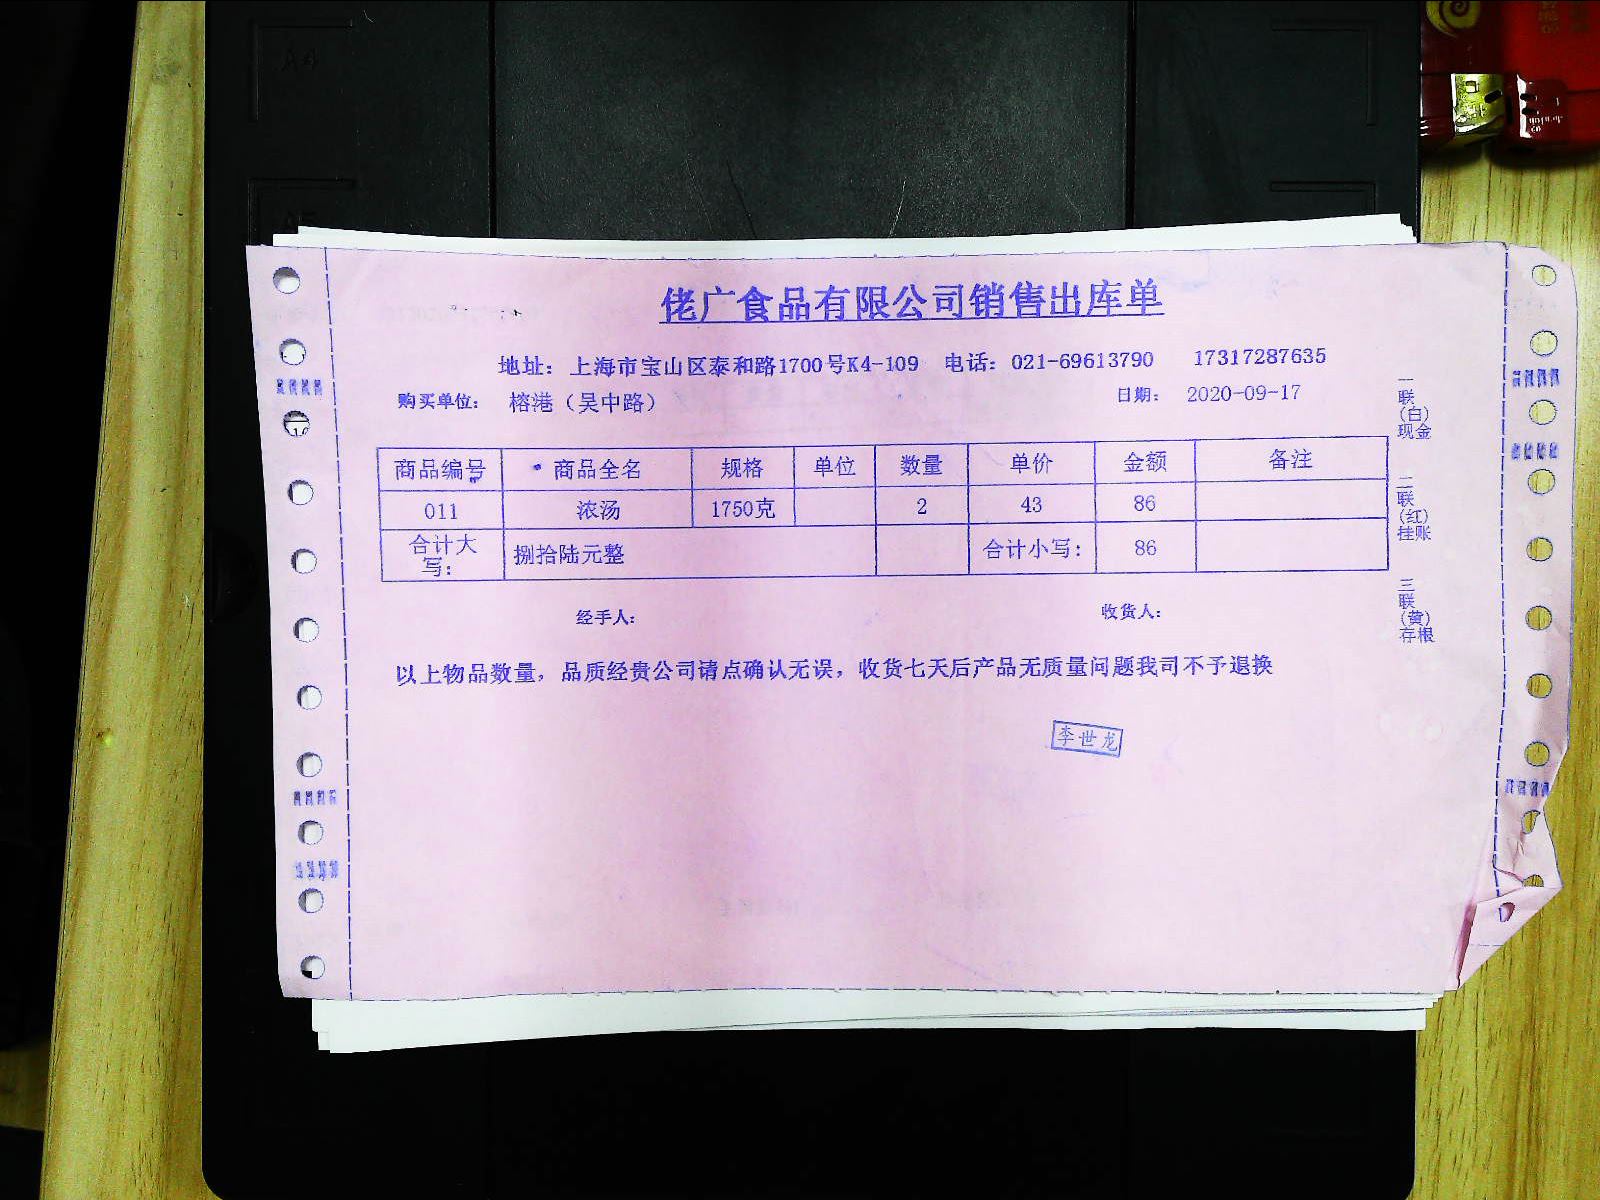 佬广食品有限公司销售出库单
地址：上海市宝山区泰和路1700号K4-109 电话：021-69613790 17317287635
购买单位： 榕港（吴中路） 日期： 2020-09-17
商品编号 商品全名 规格 单位 数量 单价 金额 备注
011 浓汤 1750克 2 43 86
合计大写： 捌拾陆元整 合计小写： 86
经手人： 收货人：
以上物品数量，品质经贵公司请点确认无误，收货七天后产品无质量问题我司不予退换
李世龙
一联（白）现金
二联（红）挂账
三联（黄）存根
A4